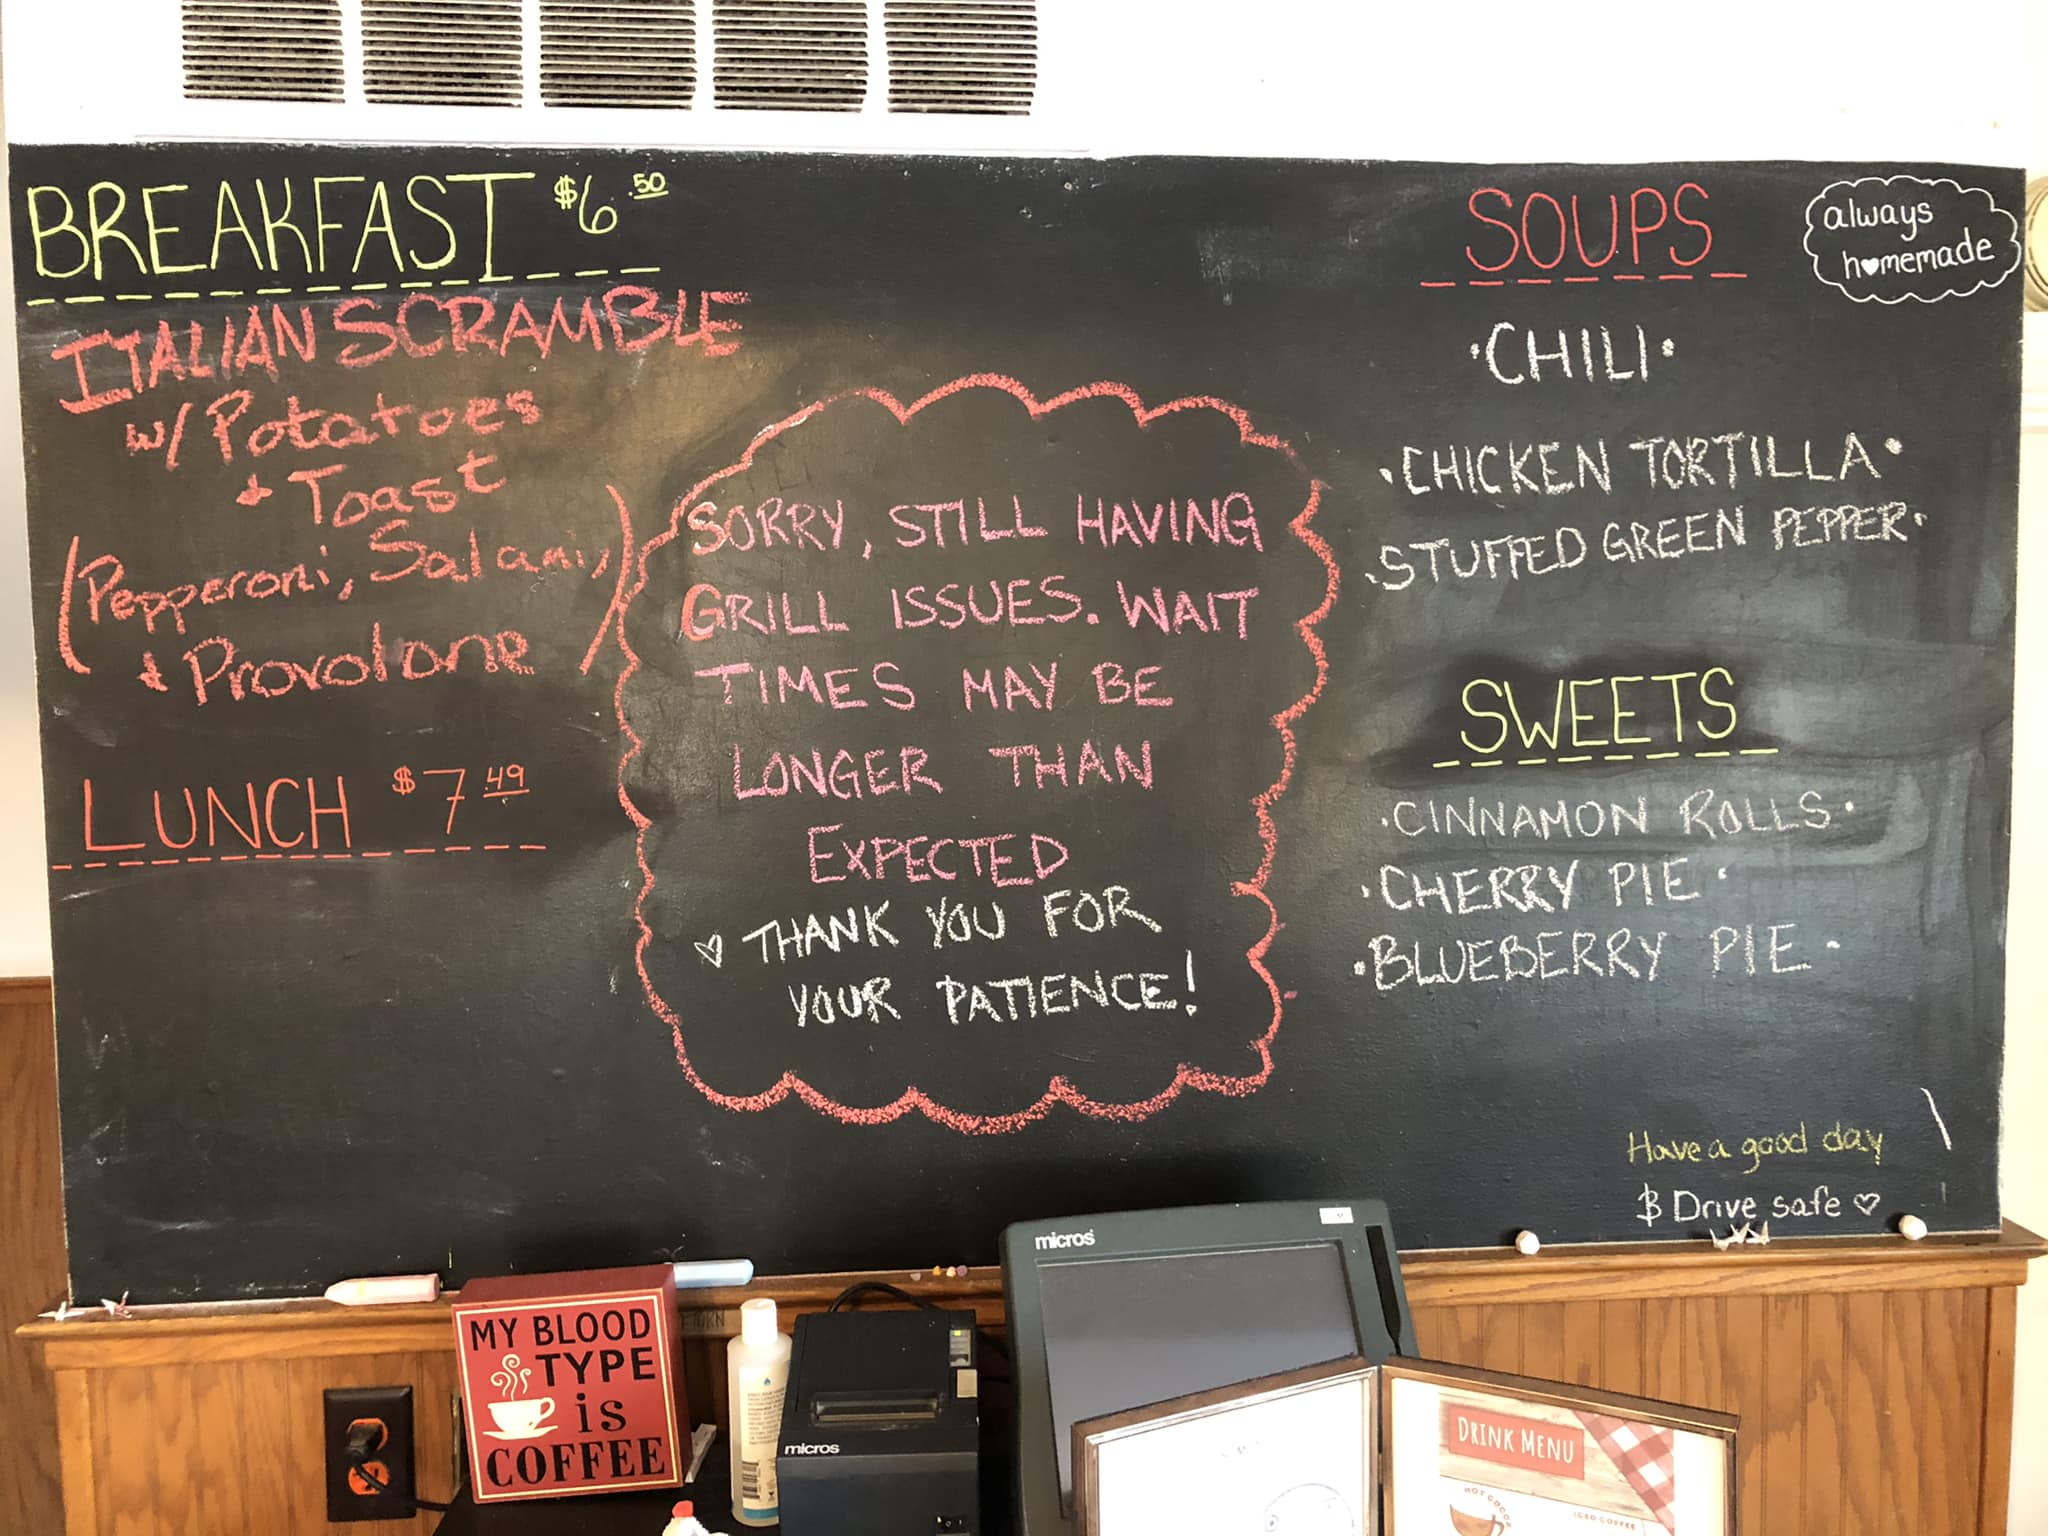 BREAKFAST $6.50
ITALIAN SCRAMBLE
w/ Potatoes
+ Toast
(Pepperoni, Salami,
+ Provolone)
LUNCH $7.49
SORRY, STILL HAVING
GRILL ISSUES. WAIT
TIMES MAY BE
LONGER THAN
EXPECTED
♡ THANK YOU FOR
YOUR PATIENCE!
SOUPS
always
h♥memade
•CHILI•
•CHICKEN TORTILLA•
•STUFFED GREEN PEPPER•
SWEETS
•CINNAMON ROLLS•
•CHERRY PIE•
•BLUEBERRY PIE•
Have a good day
& Drive safe ♡
micros
MY BLOOD
TYPE
is
COFFEE
micros
DRINK MENU
HOT COCOA
ICED COFFEE